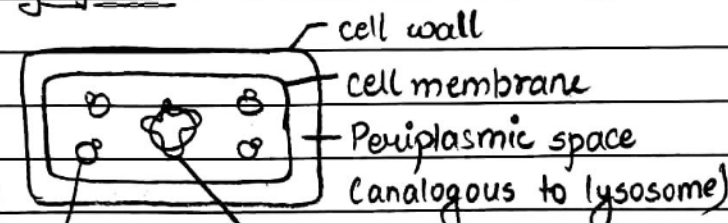 cell wall
cell membrane
Periplasmic space
(analogous to lysosome)